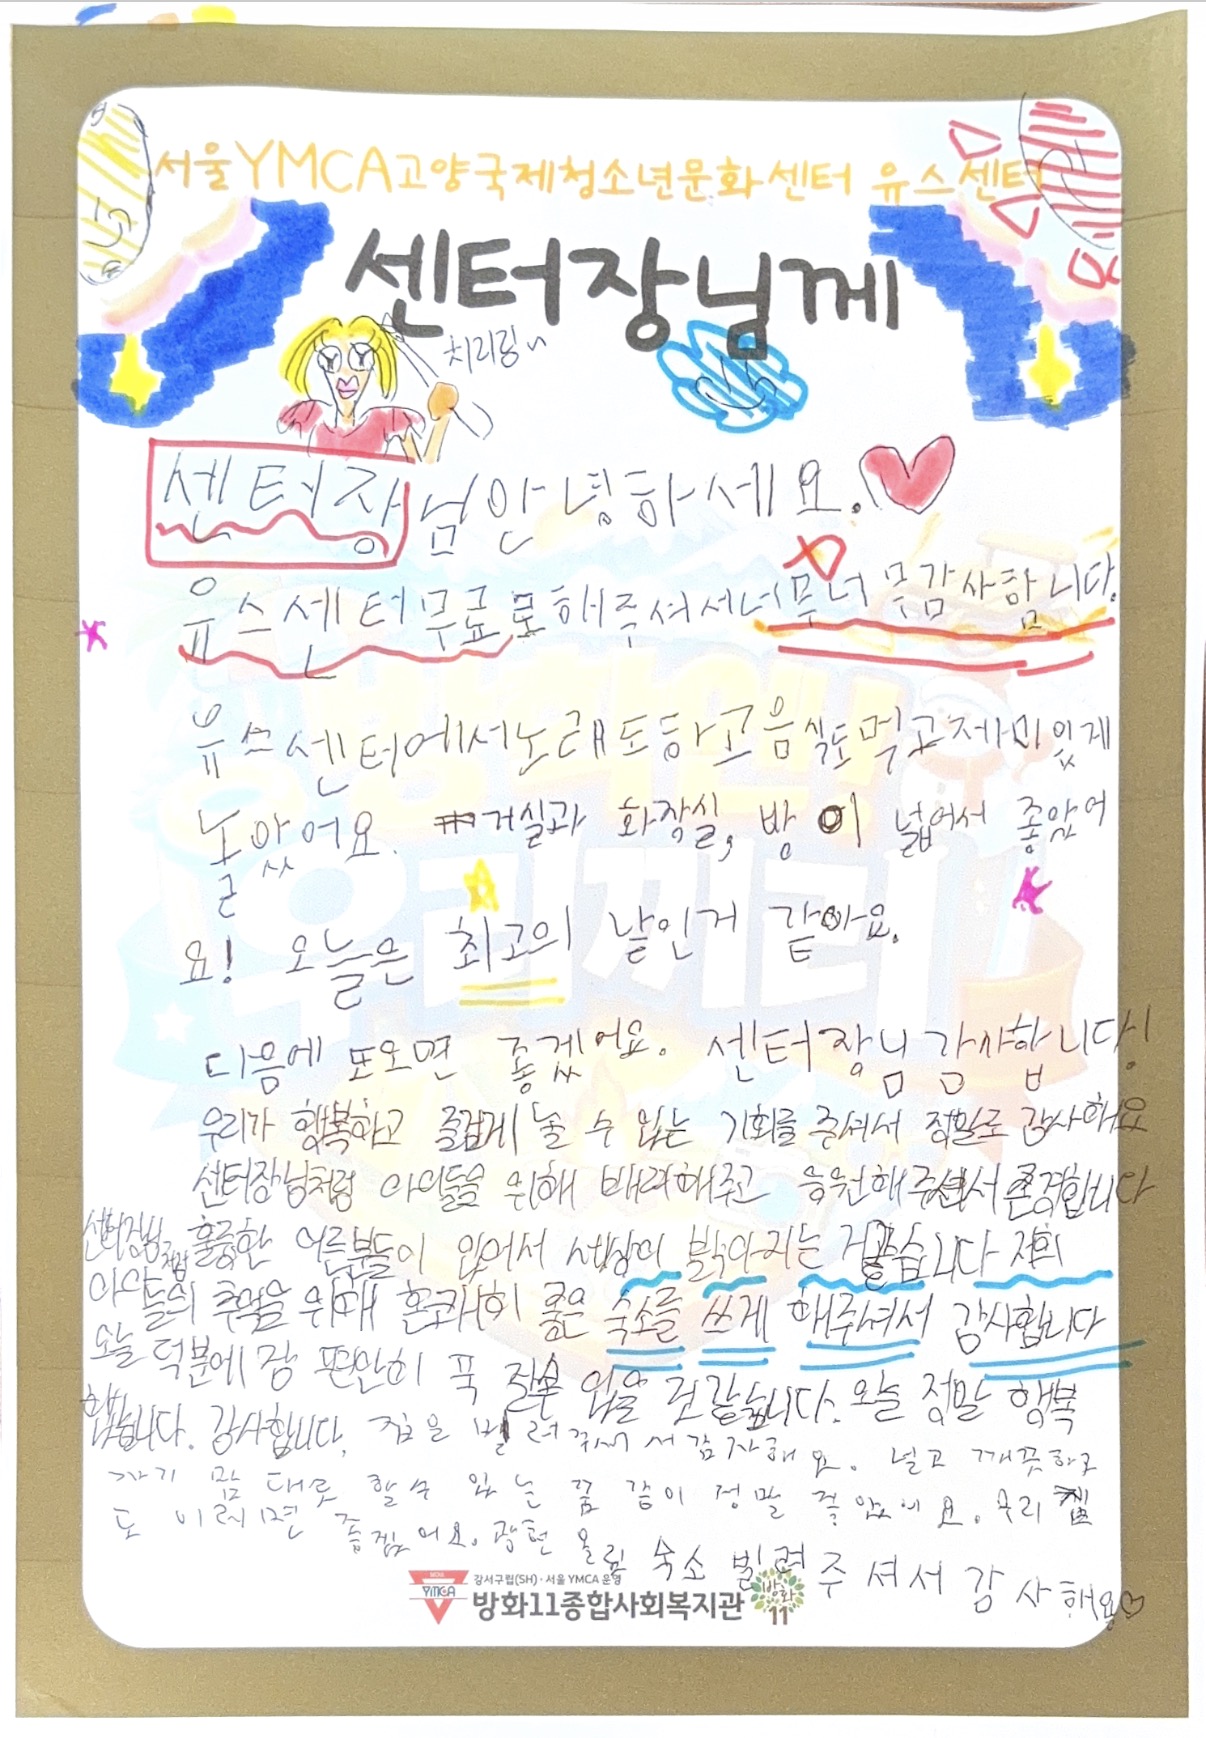 서울YMCA고양국제청소년문화센터 유스센터
센터장님께
치리링~
센터장님안녕하세요.
유스센터무료로해주셔서너무너무감사합니다.
유스센터에서노래도하고음식도먹고재미있게
놀았어요. 거실과 화장실, 방이 넓어서 좋았어
요! 오늘은 최고의 날인거 같아요.
다음에 또오면 좋겠어요. 센터장님 감사합니다!
우리가 행복하고 즐겁게 놀 수 있는 기회를 주셔서 정말로 감사해요
센터장님처럼 아이들을 위해 배려해주고 응원해주셔서 존경합니다
센터장님처럼 훌륭한 어른분들이 있어서 세상이 밝아지는 거 같습니다 저희
아이들의 추억을 위해 흔쾌히 좋은 숙소를 쓰게 해주셔서 감사합니다
오늘 덕분에 잠 편안히 푹 잘 수 있을 것 같습니다. 오늘 정말 행복
했습니다. 감사합니다. 집을 빌려주셔서감사해요. 넓고 깨끗하고
자기 맘 대로 할수 있는 꿈 같이 정말 좋았어요. 우리 집
도 이러면 좋겠어요. 숙소 빌려주셔서 감사해용
YMCA
강서구립(SH)·서울YMCA 운영
방화11종합사회복지관
방화
11